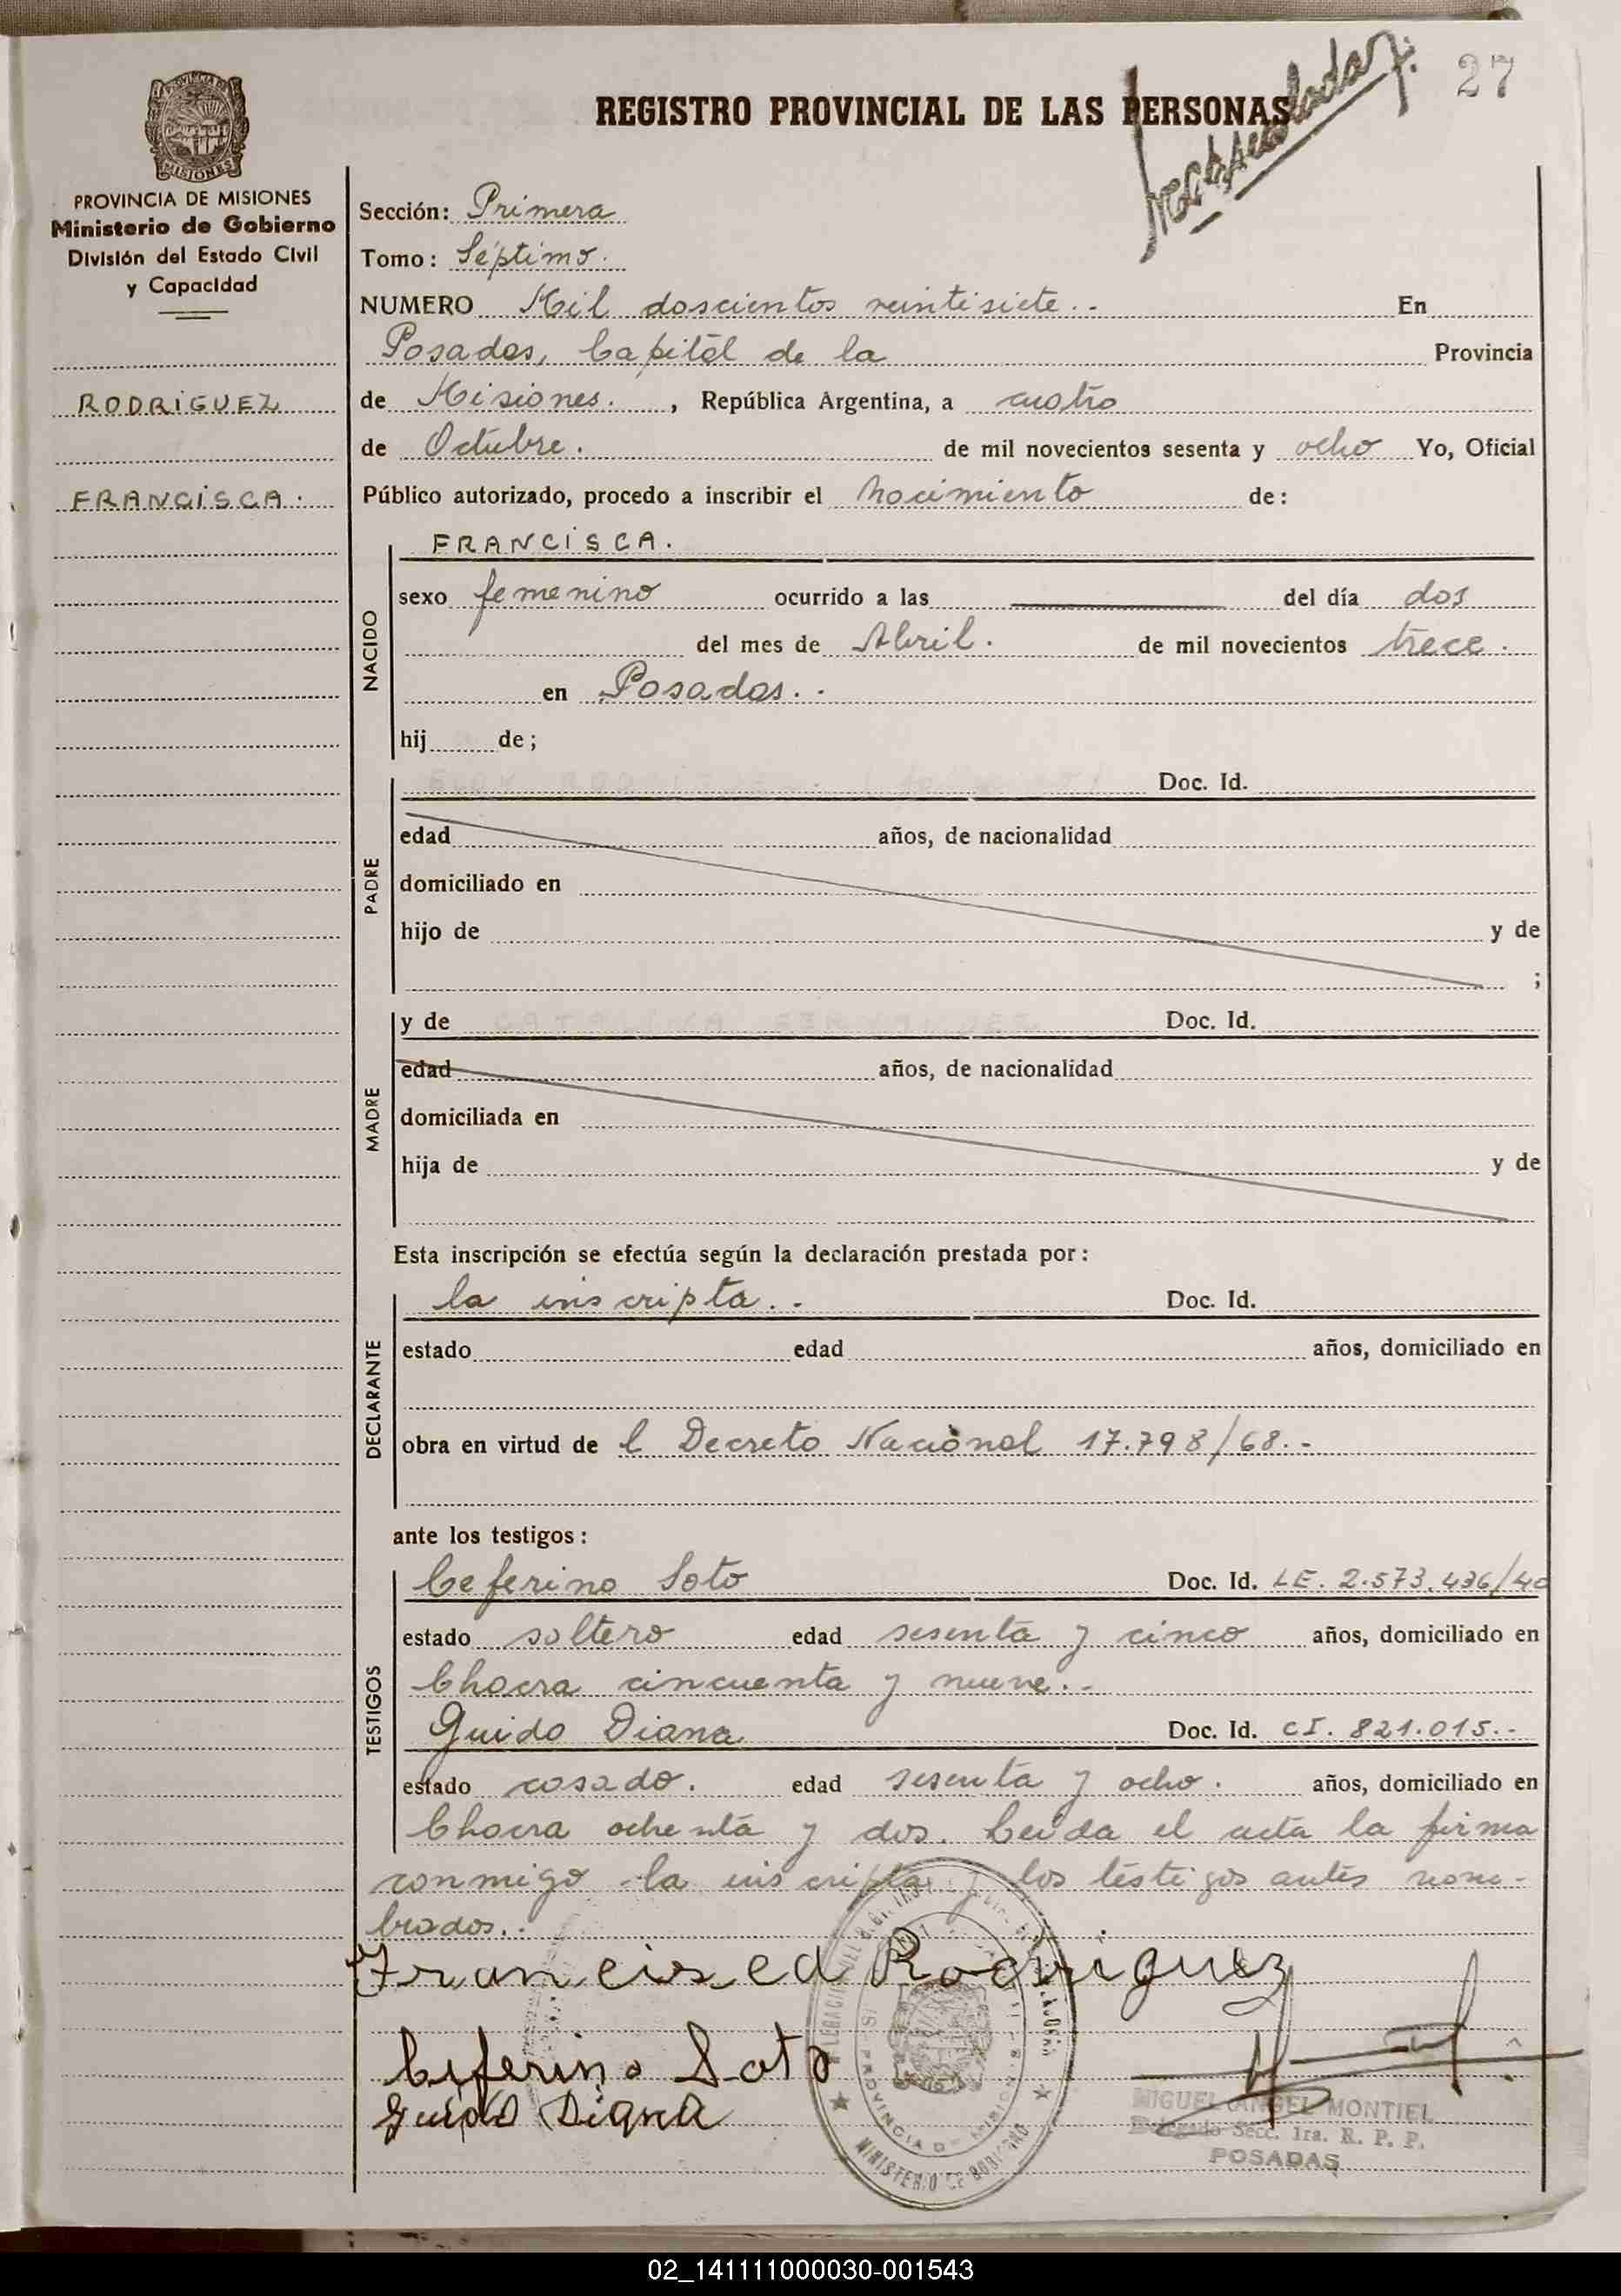 27
REGISTRO PROVINCIAL DE LAS PERSONAS
MISIONES
PROVINCIA DE MISIONES
Ministerio de Gobierno
División del Estado Civil
y Capacidad
RODRIGUEZ
FRANCISCA.
Sección: Primera
Tomo: Séptimo.
NUMERO Mil doscientos veintisiete.- En
Posadas, Capital de la Provincia
de Misiones. , República Argentina, a cuatro
de Octubre. de mil novecientos sesenta y ocho Yo, Oficial
Público autorizado, procedo a inscribir el nacimiento de:
FRANCISCA.
NACIDO
sexo femenino ocurrido a las del día dos
del mes de Abril. de mil novecientos trece.
en Posadas.-
hij de;
PADRE
Doc. Id.
edad años, de nacionalidad
domiciliado en
hijo de y de
;
MADRE
y de Doc. Id.
edad años, de nacionalidad
domiciliada en
hija de y de
Esta inscripción se efectúa según la declaración prestada por:
DECLARANTE
la inscripta.- Doc. Id.
estado edad años, domiciliado en
obra en virtud de l Decreto Nacional 17.798/68.-
ante los testigos:
TESTIGOS
Ceferino Soto Doc. Id. LE. 2.573.436/40
estado soltero edad sesenta y cinco años, domiciliado en
Chacra cincuenta y nueve.-
Guido Diana Doc. Id. CI. 821.015.-
estado casado. edad sesenta y ocho. años, domiciliado en
Chacra ochenta y dos. Leída el acta la firma
conmigo la inscripta y los testigos antes nom-
brados.-
Francisca Rodriguez
Ceferino Soto
Guido Diana
PROVINCIA DE MISIONES
MINISTERIO DE GOBIERNO
MIGUEL ANGEL MONTIEL
Delegado Secc. 1ra. R. P. P.
POSADAS
02_141111000030-001543